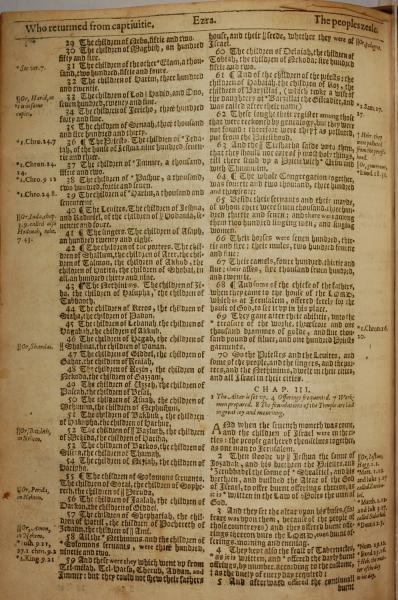 Who returned from captiuitie.
Ezra.
The peoples zeale.
29 The children of Nebo, fiftie and two.
30 The children of Magbish, an hundred
fiftie and sixe.
31 The children of the other Elam, a thou-
sand, two hundred, fiftie and foure.
32 The children of Harim, three hundred
and twentie.
33 The children of Lod, Hadid, and Ono,
seuen hundred, twentie and fiue.
34 The children of Iericho, three hundred
fourtie and fiue.
35 The children of Senaah, three thousand
and sixe hundred and thirtie.
36 The Priests. The children of Ieda-
iah, of the house of Ieshua, nine hundred, seuentie
and three.
37 The children of Immer, a thousand,
fiftie and two.
38 The children of Pashur, a thousand,
two hundred, fourtie and seuen.
39 The children of Harim, a thousand and
seuenteene.
40 The Leuites. The children of Ieshua,
and Kadmiel, of the children of Hodauia, se-
uentie and foure.
41 The singers. The children of Asaph,
an hundred twentie and eight.
42 The children of the porters. The chil-
dren of Shallum, the children of Ater, the chil-
dren of Talmon, the children of Akkub, the
children of Hatita, the children of Shobai, in
all, an hundred thirtie and nine.
43 The Nethinims. The children of Zi-
ha, the children of Hasupha, the children of
Tabbaoth,
44 The children of Keros, the children of
Siaha, the children of Padon,
45 The children of Lebanah, the children of
Hagabah, the children of Akkub,
46 The children of Hagab, the children of
Shalmai, the children of Hanan,
47 The children of Giddel, the children of
Gahar, the children of Reaiah,
48 The children of Rezin, the children of
Nekoda, the children of Gazzam,
49 The children of Uzzah, the children of
Paseah, the children of Besai,
50 The children of Asnah, the children of
Mehunim, the children of Nephusim,
51 The children of Bakbuk, the children of
Hakupha, the children of Harhur,
52 The children of Bazluth, the children of
Mehida, the children of Harsha,
53 The children of Barkos, the children of
Sisera, the children of Thamah,
54 The children of Neziah, the children of
Hatipha.
55 The children of Solomons seruants,
The children of Sotai, the children of Sophe-
reth, the children of Peruda,
56 The children of Iaalah, the children of
Darkon, the children of Giddel,
57 The children of Shephatiah, the chil-
dren of Hattil, the children of Pochereth of
Zebaim, the children of Ami.
58 All the Nethinims, and the children of
Solomons seruants, were three hundred
ninetie and two.
59 And these were they which went vp from
Tel-melah, Tel-harsa, Cherub, Addan, and
Immer: but they could not shew their fathers
house, and their seede, whether they were of
Israel.
60 The children of Delaiah, the children of
Tobiah, the children of Nekoda: sixe hundred
fiftie and two.
61 And of the children of the priests: the
children of Habaiah, the children of Koz, the
children of Barzillai, (which tooke a wife of
the daughters of Barzillai the Gileadite, and
was called after their name)
62 These sought their register among those
that were reckoned by genealogy, but they were
not found: therefore were they as polluted,
put from the Priesthood.
63 And the Tirshatha said vnto them,
that they should not eate of the most holy things,
till there stood vp a Priest with Urim and
with Thummim.
64 The whole Congregation together,
was fourtie and two thousand, three hundred
and threescore:
65 Beside their seruants and their maids,
of whom there were seuen thousand, three hun-
dred thirtie and seuen: and there was among
them two hundred singing men, and singing
women.
66 Their horses were seuen hundred, thir-
tie and sixe: their mules, two hundred fourtie
and fiue:
67 Their camels, foure hundred, thirtie and
fiue: their asses, sixe thousand seuen hundred
and twentie.
68 And some of the chiefe of the fathers,
when they came to the house of the LORD,
which is at Ierusalem, offered freely for the
house of God, to set it vp in his place:
69 They gaue after their abilitie, vnto the
treasure of the worke, threescore and one
thousand drammes of golde, and fiue thou-
sand pound of siluer, and one hundred Priests
garments.
70 So the Priests and the Leuites, and
some of the people, and the singers, and the por-
ters, and the Nethinims, dwelt in their cities,
and all Israel in their cities.
CHAP. III.
1 The Altar is set vp. 4 Offerings frequented. 7 Work-
men prepared. 8 The foundations of the Temple are laid
in great ioy and mourning.
AND when the seuenth moneth was come,
and the children of Israel were in the ci-
ties: the people gathered themselues together,
as one man to Ierusalem.
2 Then stood vp Ieshua the sonne of
Iozadak, and his brethren the Priests, and
Zerubbabel the sonne of Shealtiel, and his
brethren, and builded the Altar of the God
of Israel, to offer burnt offerings thereon, as
it is written in the Law of Moses the man of
God.
3 And they set the altar vpon his bases, (for
feare was vpon them, because of the people of
those countreys) and they offered burnt offe-
rings thereon vnto the LORD, euen burnt of-
ferings, morning and euening.
4 They kept also the feast of Tabernacles,
as it is written, and offered the dayly burnt
offerings, by number, according to the custome,
as the duety of euery day required:
5 And afterward offered the continuall
burnt